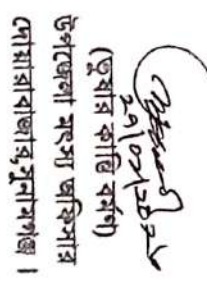 (তুষার কান্তি বর্মণ)
উপজেলা মৎস্য অফিসার
দোয়ারাবাজার,সুনামগঞ্জ ।